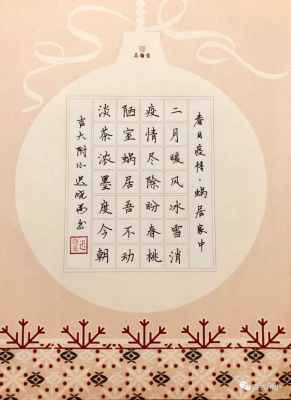 品翰堂
春日疫情·蜗居家中
二月暖风冰雪消
疫情尽除盼春桃
陋室蜗居吾不动
淡茶浓墨度今朝
吉大附小迟晓雨书